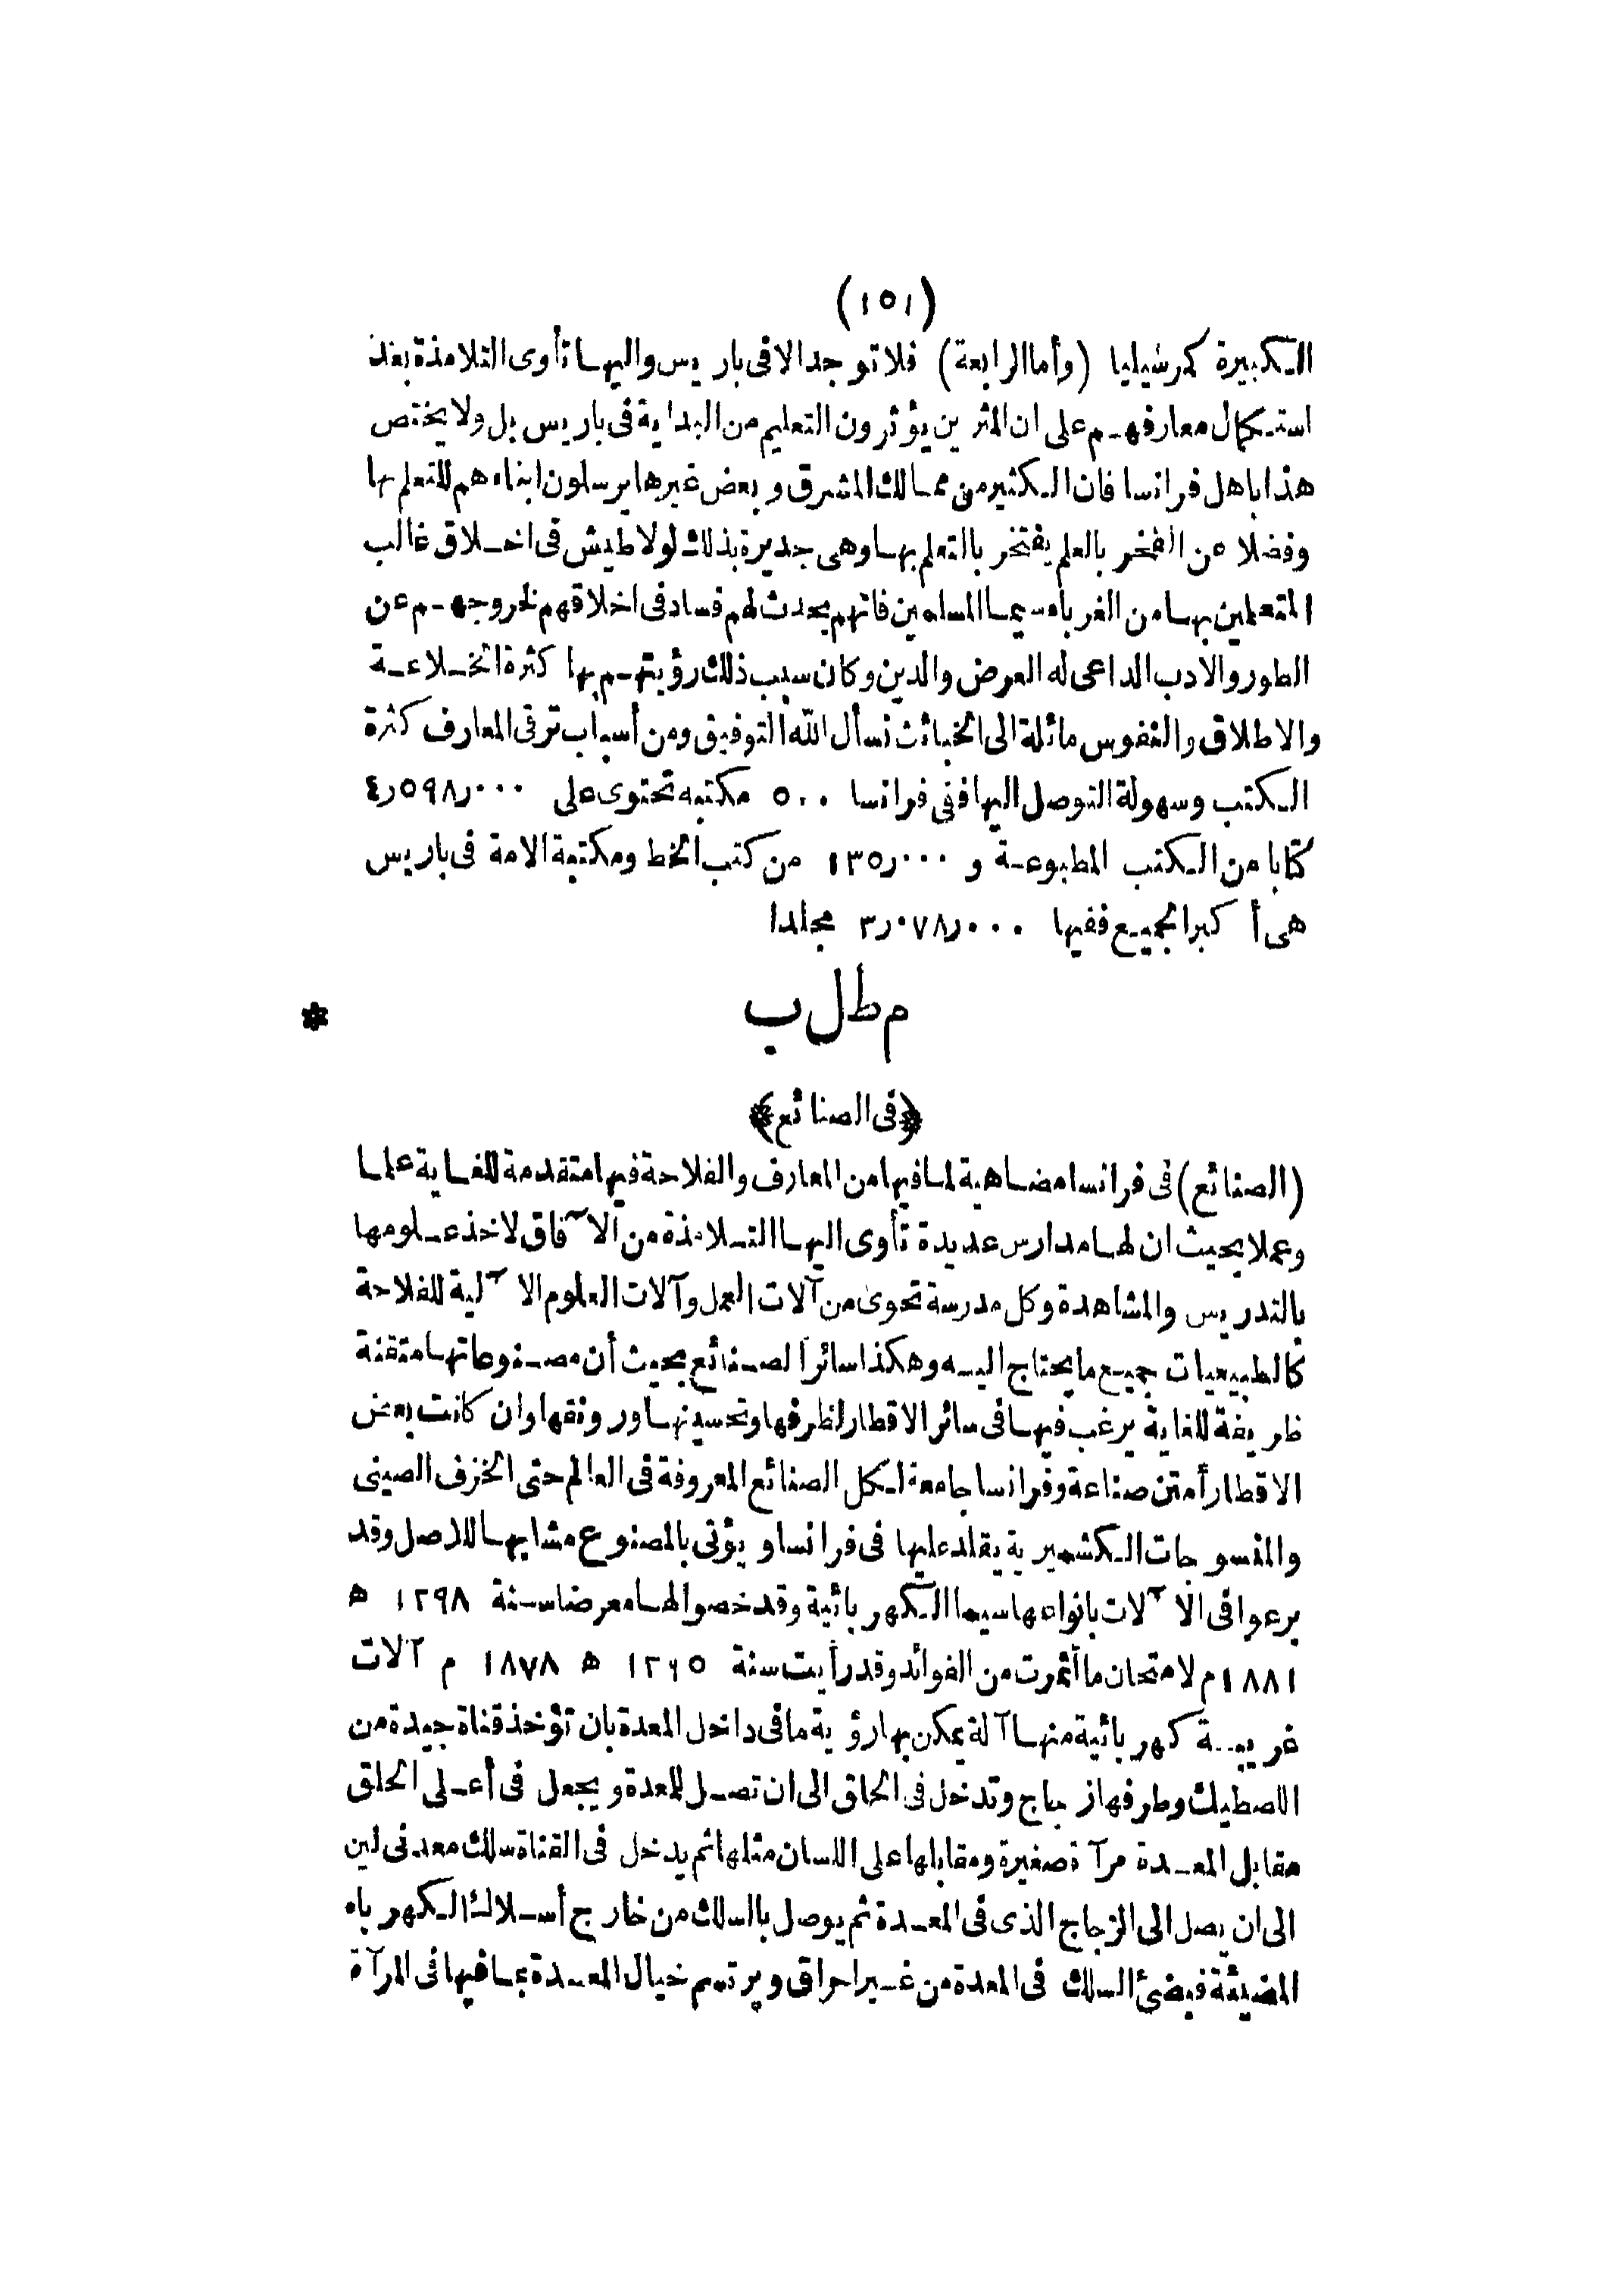 (١٥١)
الكبيرة كمرشيليا (وأما الرابعة) فلا توجد الا فى باريس واليها تأوى التلامذة بعد
استكمال معارفهم على ان المثرين يؤثرون التعليم من البداية فى باريس بل ولا يختص
هذا باهل فرانسا فان الكثير من ممالك المشرق وبعض غيرها يرسلون ابناءهم للتعلم بها
وفضلا عن الفخر بالعلم يفتخر بالتعلم بها وهى جديرة بذلك لولا طيش فى اخلاق غالب
المتعلمين بها من الغرباء سيما المسلمين فانهم يحدث لهم فساد فى اخلاقهم لخروجهم عن
الطور والادب الداعى له العرض والدين وكان سبب ذلك رؤيتهم بها كثرة الخلاعة
والاطلاق والنفوس مائلة الى الخبائث نسأل الله التوفيق ومن أسباب ترقى المعارف كثرة
الكتب وسهولة التوصل اليها ففى فرانسا ٥٠٠ مكتبه تحتوى على ٤٫٥٩٨٫٠٠٠
كتابا من الكتب المطبوعة و ١٣٥٫٠٠٠ من كتب الخط ومكتبة الامة فى باريس
هى أكبر الجميع ففيها ٣٫٠٧٨٫٠٠٠ مجلدا
مطلب *
﴿فى الصنائع﴾
(الصنائع) فى فرانسا مضاهية لما فيها من المعارف والفلاحة فيها متقدمة للغاية علما
وعملا بحيث ان لها مدارس عديدة تأوى اليها التلامذة من الآفاق لاخذ علومها
بالتدريس والمشاهدة وكل مدرسة تحوى من آلات العمل وآلات العلوم الآلية للفلاحة
كالطبيعيات جميع ما يحتاج اليه وهكذا سائر الصنائع بحيث أن مصنوعاتها متقنة
ظريفة للغاية يرغب فيها فى سائر الاقطار لظرفها وتحسينها ورونقها وان كانت بعض
الاقطار أمتن صناعة وفرانسا جامعة لكل الصنائع المعروفة فى العالم حتى الخزف الصينى
والمنسوجات الكشميرية يقلد عليها فى فرانسا ويؤتى بالمصنوع مشابها للاصل وقد
برعوا فى الآلات بانواعها سيما الكهربائية وقد خصوا لها معرضا سنة ١٢٩٨ ه
١٨٨١م لامتحان ما أثمرت من الفوائد وقد رأيت سنة ١٢٩٥ ه ١٨٧٨ م آلات
غريبة كهربائية منها آلة يمكن بها رؤية ما فى داخل المعدة بان تؤخذ قناة جيدة من
اللصطيك وطرفها زجاج وتدخل فى الحلق الى ان تصل للمعدة ويجعل فى أعلى الحلق
مقابل المعدة مرآة صغيرة ومقابلها على اللسان مثلها ثم يدخل فى القناة سلك معدنى لين
الى ان يصل الى الزجاج الذى فى المعدة ثم يوصل بالسلك من خارج أسلاك الكهرباء
المضيئة فيضئ السلك فى المعدة من غير احراق ويرتسم خيال المعدة بما فيها فى المرآة